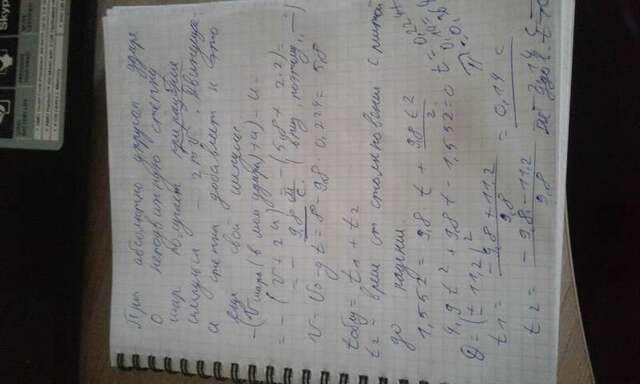 Skype
При абсолютно упругом ударе
о неподвижную стенку
шар получает приращение
импульса - 2mV. Движущая-
ся стенка добавляет к это
еще свой импульс
-(Vшара(в мом удара)+u)-u=
= -(V+2u) -(5,8+2·2)=
= - 9,8 м/с. (вниз, поэтому „-")
V=V₀-gt=8-9,8·0,224=5,8
tобщ= t₁ + t₂
t₂ - время от столкновения с плитой
до падения.
1,552 = 9,8·t + 9,8t²/2
4,9t² + 9,8t - 1,552=0
D=(±11,2)²
t₁= -9,8+11,2/9,8 = 0,14 с
t₂= -9,8-11,2/9,8
t=0,224+
0,14=
=0,364